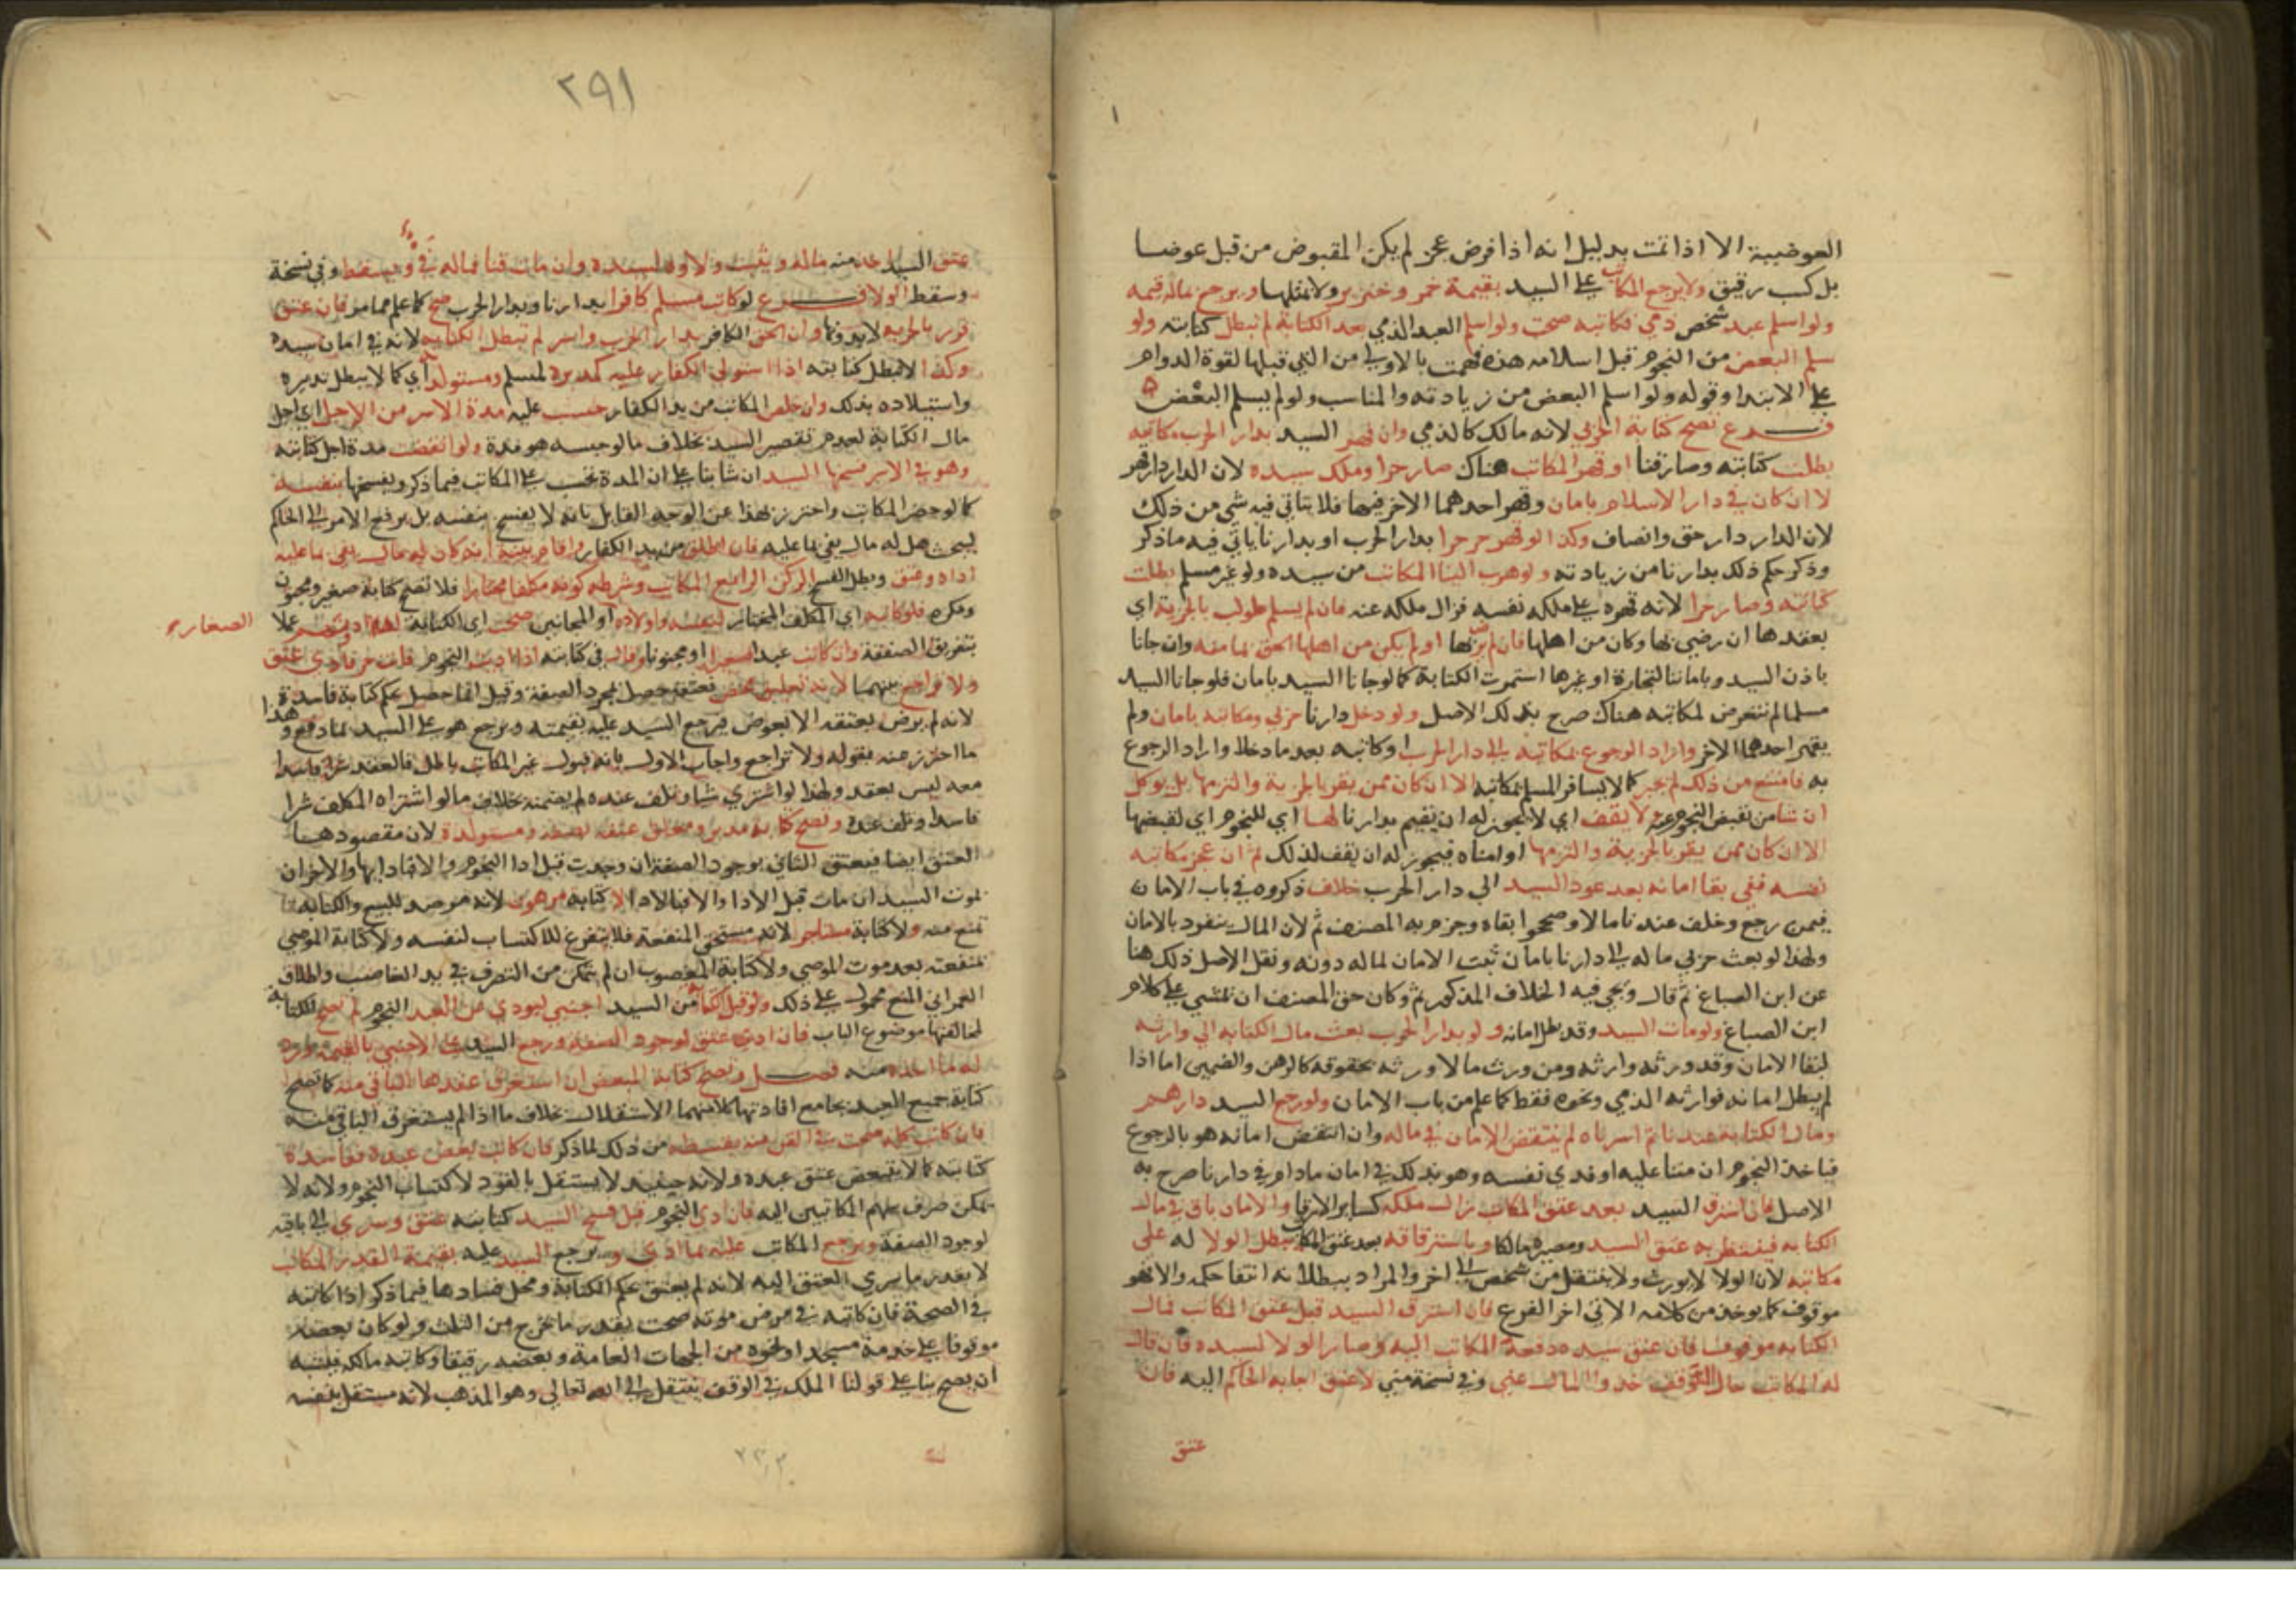 العوضيية الا اذا تمت بدليل انه اذا فرض عجز لم يكن المقبوض من قبل عوضا
بل كسب رقيق ولا يرجع المكاتب على السيد بقيمة خمر وخنزير ولا مثلها ويرجع ماله قيمه
ولو اسلم عبد شخص ذمي فكاتبه صحت ولو اسلم العبد الذمي بعد الكتابة لم تبطل كتابته ولو
سلم البعض من النجوم قبل اسلامه هذه فهمت بالاولي من التي قبلها لقوة الدوام
على الابتدا وقوله ولو اسلم البعض من زيادته والمناسب ولو لم يسلم البعض
فرع تصح كتابة الحربي لانه مالك كالذمي وان قهر السيد بدار الحرب مكاتبه
بطلت كتابته وصار قنا او قهر المكاتب هناك صار حرا وملك سيده لان الدار دار قهر
لا ان كان في دار الاسلام بامان وقهر احدهما الاخر فيها فلا يتاتي فيه شي من ذلك
لان الدار دار حق وانصاف وكذا لو قهر حر حرا بدار الحرب او بدارنا ياتي فيه ماذكر
وذكر حكم ذلك بدارنا من زيادته ولو هرب الينا المكاتب من سيده ولو غير مسلم بطلت
كتابته وصار حرا لانه قهره على ملكه نفسه فزال ملكه عنه فان لم يسلم طولب بالجزية اي
بعقدها ان رضي بها وكان من اهلها فان لم يرض بها او لم يكن من اهلها الحق بمامنه وان جانا
باذن السيد وباماننا لتجارة او غيرها استمرت الكتابة كما لو جانا السيد بامان فلو جانا السيد
مسلما لم نتعرض لمكاتبه هناك صرح بذلك الاصل ولو دخل دارنا حربي ومكاتبه بامان ولم
يقهر احدهما الاخر واراد الرجوع بمكاتبه الى دار الحرب او كاتبه بعد ما دخلا واراد الرجوع
به فامتنع من ذلك لم يجبر كما لا يسافر المسلم بمكاتبه الا ان كان ممن يقر بالجزية والتزمها بل يوكل
ان شا من يقبض النجوم عنه ولا يقف اي لا يجوز له ان يقيم بدارنا لها اي للنجوم اي لقبضها
الا ان كان ممن يقر بالجزية والتزمها او امناه فيجوز له ان يقف لذلك ثم ان عجز مكاتبه
نفسه ففي بقا امانه بعد عود السيد الى دار الحرب خلاف ذكروه في باب الامان
فيمن رجع وخلف عندنا مالا وصححوا بقاه وجزم به المصنف ثم لان المال ينفرد بالامان
ولهذا لو بعث حربي ماله الى دارنا بامان ثبت الامان لماله دونه ونقل الاصل ذلك هنا
عن ابن الصباغ ثم قال ويجي فيه الخلاف المذكور ثم وكان حق المصنف ان يمشي على كلام
ابن الصباغ ولو مات السيد وقد بطل امانه ولو بدار الحرب بعث مال الكتابه الى وارثه
لبقا الامان وقد ورثه وارثه ومن ورث مالا ورثه بحقوقه كالرهن والضمين اما اذا
لم يبطل امانه فوارثه الذمي ونحوه فقط كما علم من باب الامان ولو رجع السيد دارهم
ومال الكتابة عندنا ثم اسرناه لم ينتقض الامان في ماله وان انتقض امانه هو بالرجوع
فياخذ النجوم ان مننا عليه او فدي نفسه وهو بذلك في امان مادام في دارنا صرح به
الاصل فان استرق السيد بعد عتق المكاتب زال ملكه كساير الارقا والامان باق في مال
الكتابه فينتظر به عتق السيد ومصيره مالكا وباسترقاقه بعد عتق المكاتب يبطل الولا له على
مكاتبه لان الولا لا يورث ولا ينتقل من شخص الى اخر والمراد ببطلانه انتفا حكمه والا فهو
موقوف كما يوخذ من كلامه الاتي اخر الفرع فان استرق السيد قبل عتق المكاتب فمال
الكتابه موقوف فان عتق سيده دفعه المكاتب اليه وصار الولا لسيده فان قال
له المكاتب حال التوقف خذوا المال عني وفي نسخة مني لاعتق اجابه الحاكم اليه فان
عتق
٢٩١
عتق السيد اخذ منه ماله ويثبت ولاوه لسيده وان مات قنا فماله في ويسقط وفي نسخة
وسقط الولا فرع لو كاتب مسلم كافرا بدارنا وبدار الحرب صح كما علم مما مر فان عتق
قرر بالجزيه لا بدونها وان لحق الكافر بدار الحرب واسر لم تبطل الكتابه لانه في امان سيده
وكذا لا تبطل كتابته اذا استولى الكفار عليه كمدبرة لمسلم ومستولدته اي كما لا يبطل تدبيره
واستيلاده بذلك وان خلص المكاتب من يد الكفار حسبت عليه مدة الاسر من الاجل اي اجل
مال الكتابة لعدم تقصير السيد بخلاف مالو حبسه هو مدة ولو انقضت مدة اجل كتابته
وهو في الاسر فسخها السيد ان شا بنا على ان المدة تحسب على المكاتب فيما ذكر ويفسخها بنفسه
كما لو حضر المكاتب واحترز بهذا عن الوجه القايل بانه لا يفسخ بنفسه بل يرفع الامر الى الحاكم
ليبحث هل له مال يفي بما عليه فان اطلق من يد الكفار واقام بينة انه كان له مال يفي بما عليه
اداه وعتق وبطل الفسخ الركن الرابع المكاتب وشرطه كونه مكلفا مختارا فلا تصح كتابة صغير ومجنون
ومكره فلو كاتبه اي المكلف المختار لنفسه واولاده او المجانين صحت اي الكتابة له دونهم عملا
الصغار صح
بتفريق الصفقة وان كاتب عبدا صغيرا او مجنونا وقال في كتابته اذا اديت النجوم فانت حر فادى عتق
ولا تراجع بينهما لانه تعليق محض فعتقه حصل بمجرد الصفة وقيل انما حصل بحكم كتابة فاسدة
لانه لم يرض بعتقه الا بعوض فيرجع السيد عليه بقيمته ويرجع هو على السيد بما دفع وهذا
ما احترز عنه بقوله ولا تراجع واجاب الاول بانه قبول غير المكاتب باطل فالعقد
معه ليس بعقد ولهذا لو اشترى شيا وتلف عنده لم يضمنه بخلاف مالو اشتراه المكلف شرا
فاسدا وتلف عنده وتصح كتابة مدبر ومعلق عتقه بصفه ومستولدة لان مقصودهما
العتق ايضا فيعتق الثاني بوجود الصفة ان وجدت قبل ادا النجوم والا فبادايها والاخران
بموت السيد ان مات قبل الادا والا فبالادا لا كتابة مرهون لانه مرصد للبيع والكتابة
تمنع منه ولا كتابة مستاجر لانه مستحق المنفعة فلا يتفرغ للاكتساب لنفسه ولا كتابة الموصي
بمنفعته بعد موت الموصي ولا كتابة المغصوب ان لم يتمكن من التصرف في يد الغاصب واطلاق
العمراني المنع محمول على ذلك ولو قبل الكتابة من السيد اجنبي ليودي عن العبد النجوم لم تصح الكتابة
لمخالفتها موضوع الباب فان ادى عتق لوجود الصفة ورجع السيد على الاجنبي بالقيمة ورد
له ما اخذه منه فصل وتصح كتابة المبعض ان استغرق عقدها الباقي منه كما تصح
كتابة جميع العبد بجامع افادتها كلا منهما الاستقلال بخلاف ما اذا لم يستغرق الباقي منه
فان كاتب كله صحت في القن منه بقسطه من ذلك لما ذكر فان كاتب بعض عبده ففاسدة
كتابته كما لا يتبعض عتق عبده ولانه حينيذ لا يستقل بالتردد لاكتساب النجوم ولانه لا
يمكن صرف سهم المكاتبين اليه فان ادى النجوم قبل فسخ السيد كتابته عتق وسرى الى باقيه
لوجود الصفة ويرجع المكاتب عليه بما ادى ويرجع السيد عليه بقيمة القدر المكاتب
لا بقدر ما سرى العتق اليه لانه لم يعتق بحكم الكتابة ومحل فسادها فيما ذكر اذا كاتبه
في الصحة فان كاتبه في مرض موته صحت بقدر ما يخرج من الثلث ولو كان بعضه
موقوفا على خدمة مسجد او نحوه من الجهات العامة وبعضه رقيقا وكاتبه مالكه فيشبه
ان يصح بنا على قولنا الملك في الوقف ينتقل الى الله تعالى وهو المذهب لانه مستقل بنفسه